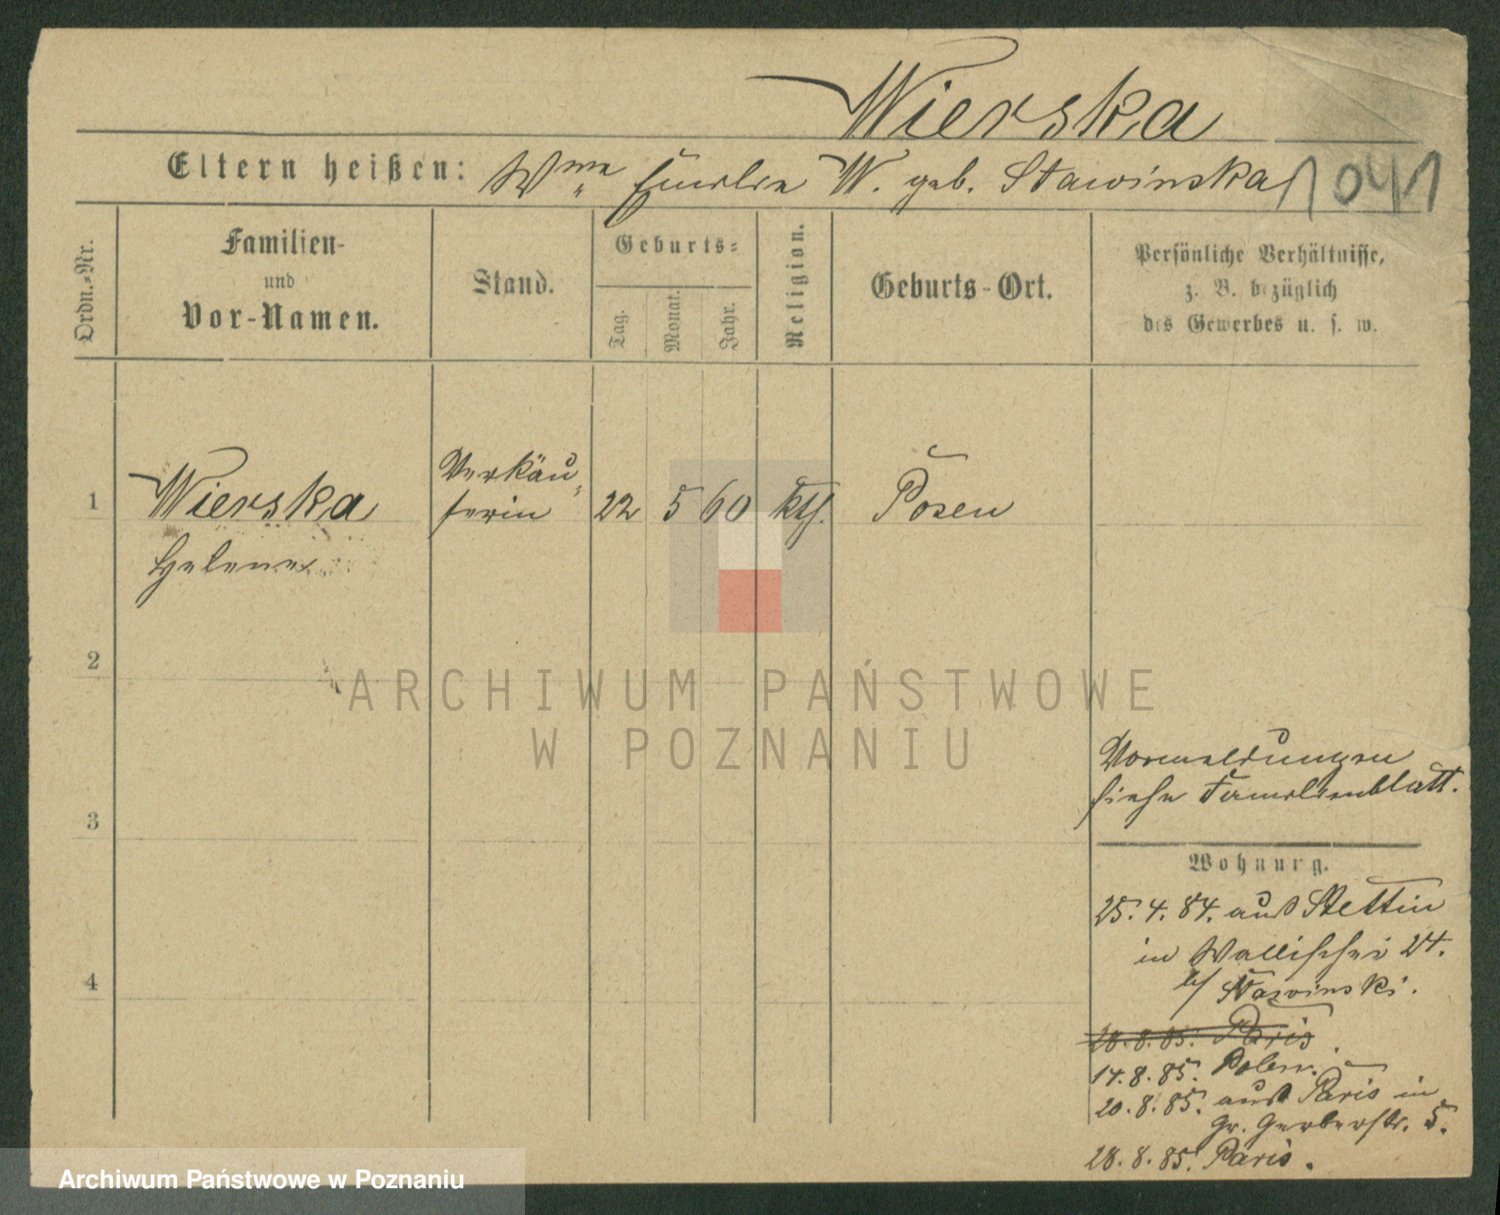 Wierska
Eltern heißen: Wwe Emilie W. geb. Stawinska
1041
Ordn.-Nr.
Familien-
und
Vor-Namen.
Stand.
Geburts-
Tag.
Monat.
Jahr.
Religion.
Geburts-Ort.
Persönliche Verhältnisse,
z. B. bezüglich
des Gewerbes u. s. w.
1 Wierska Verkäu- 22 5 60 kth. Posen
ferin
Helene
2
ARCHIWUM PAŃSTWOWE
W POZNANIU
Vormeldungen
siehe Familienblatt.
3
Wohnung.
25. 4. 84. aus Stettin
in Wallischei 24.
4
b/ Stawinski.
28. 8. 85. Paris
14. 8. 85. Polen.
20. 8. 85. aus Paris in
Gr. Gerberstr. 5.
28. 8. 85. Paris.
Archiwum Państwowe w Poznaniu